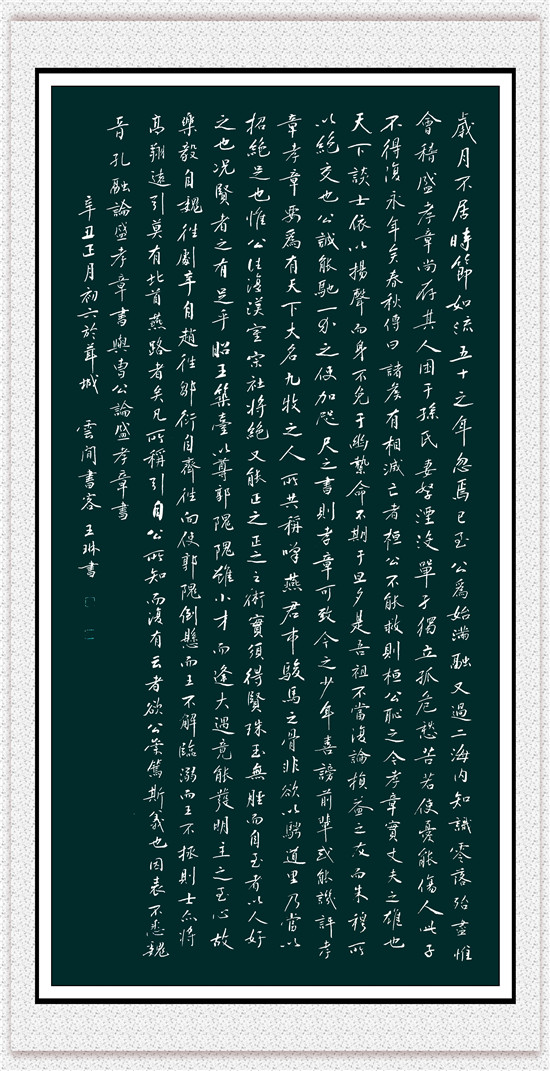 歲月不居時節如流五十之年忽焉已至公為始滿融又過二海內知識零落殆盡惟
會稽盛孝章尚存其人困于孫氏妻孥湮沒單孑獨立孤危愁苦若使憂能傷人此子
不得復永年矣春秋傳曰諸侯有相滅亡者桓公不能救則桓公恥之今孝章實丈夫之雄也
天下談士依以揚聲而身不免于幽縶命不期于旦夕是吾祖不當復論損益之友而朱穆所
以絕交也公誠能馳一介之使加咫尺之書則孝章可致今之少年喜謗前輩或能譏評孝
章孝章要為有天下大名九牧之人所共稱嘆燕君市駿馬之骨非欲以騁道里乃當以
招絕足也惟公匡復漢室宗社將絕又能正之正之之術實須得賢珠玉無脛而自至者以人好
之也况賢者之有足乎昭王築臺以尊郭隗隗雖小才而逢大遇竟能發明主之至心故
樂毅自魏往劇辛自趙往鄒衍自齊往向使郭隗倒懸而王不解臨溺而王不拯則士亦將
高翔遠引莫有北首燕路者矣凡所稱引自公所知而復有云者欲公崇篤斯義也因表不悉魏
晉孔融論盛孝章書與曹公論盛孝章書
辛丑正月初六於茸城 雲間書客王琳書